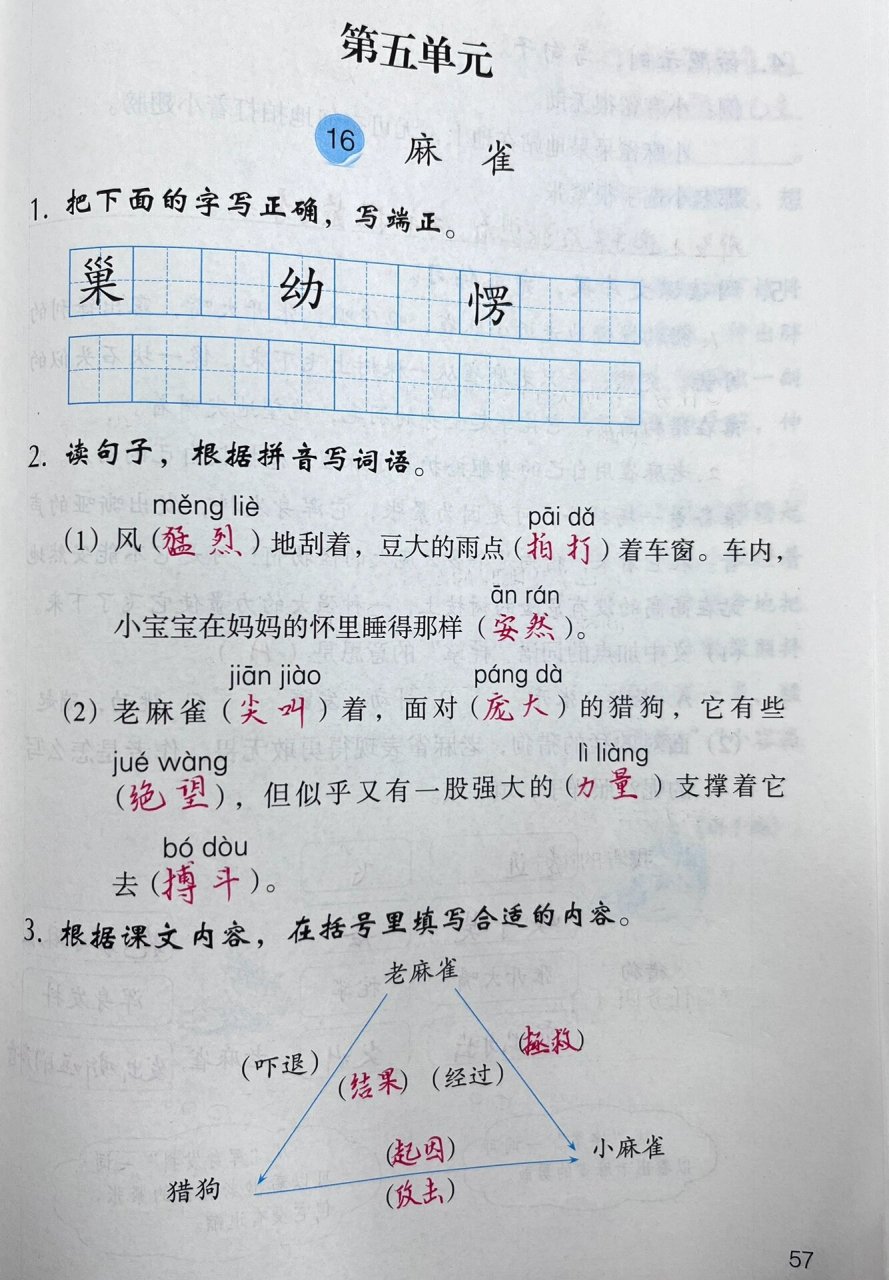 第五单元
16 麻雀
1. 把下面的字写正确，写端正。
巢 幼 愣
2. 读句子，根据拼音写词语。
měng liè pāi dǎ
(1) 风(猛烈)地刮着，豆大的雨点(拍打)着车窗。车内，
ān rán
小宝宝在妈妈的怀里睡得那样(安然)。
jiān jiào páng dà
(2) 老麻雀(尖叫)着，面对(庞大)的猎狗，它有些
jué wàng lì liàng
(绝望)，但似乎又有一股强大的(力量)支撑着它
bó dòu
去(搏斗)。
3. 根据课文内容，在括号里填写合适的内容。
老麻雀
(吓退) (结果) (经过) (拯救)
(起因) 小麻雀
猎狗 (攻击)
57